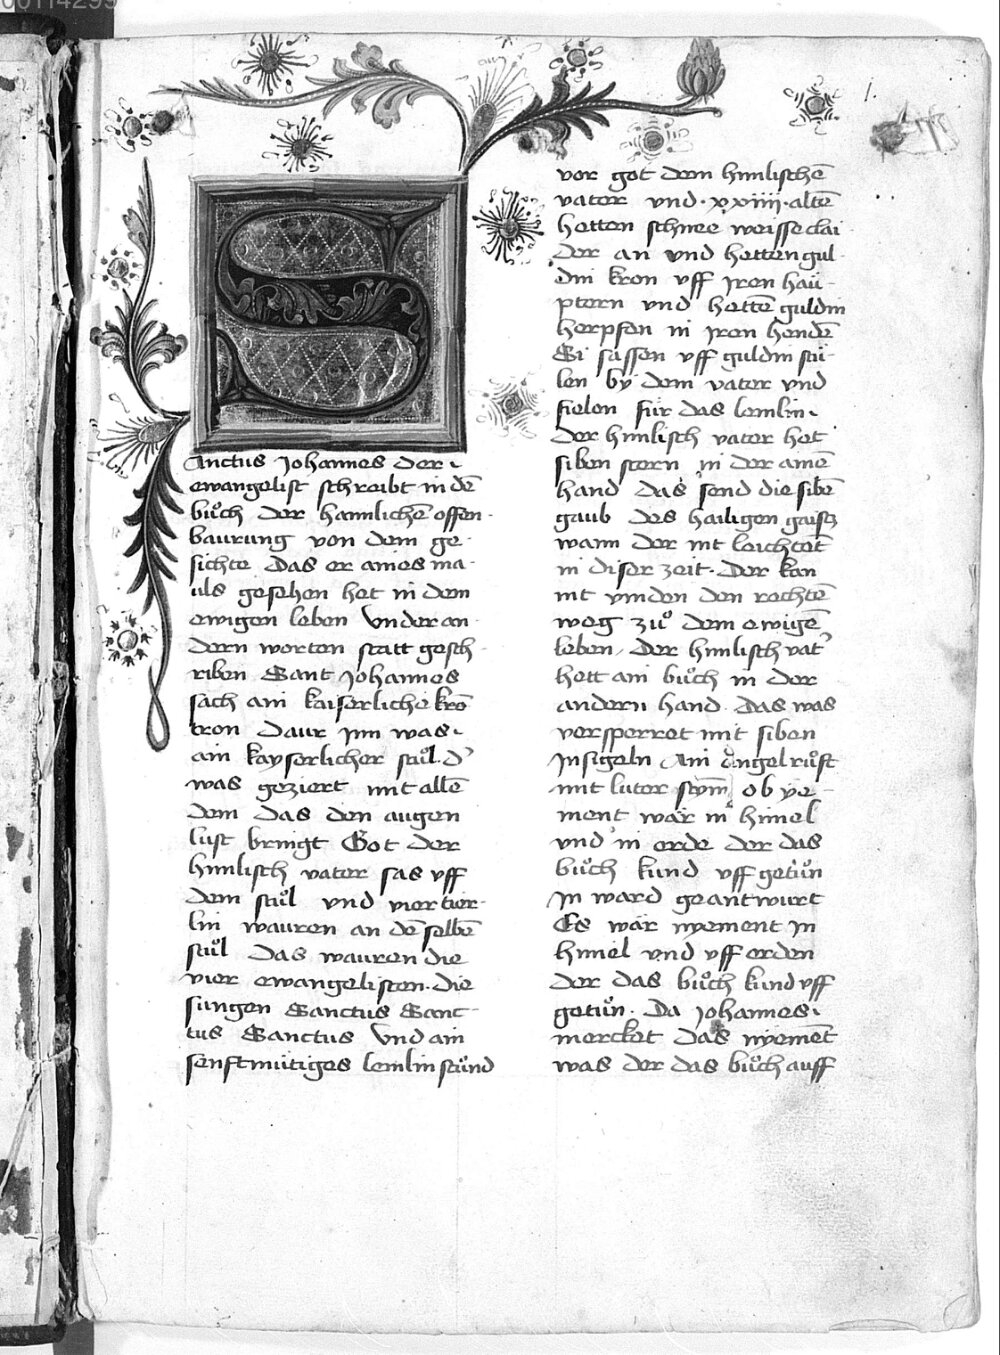 00114299
1.
S
Anctus Johannes der
ewangelist schreibt in dē
bůch der haimlichē offen-
baurung von dem ge-
sichte das er aines ma-
uls gesehen het in dem
ewigen leben Vnder an-
dern worten statt gesch-
riben Sant Johannes
sach ain kaiserliche kro
tron Daur Inn was
ain kayserlicher stůl d'
was geziert mit allē
dem das den augen
lust bringt Got der
himlisch vater sas vff
dem stůl vnd vier tier-
lin wauren an dē selbē
stůl Das wauren die
vier ewangelisten. die
sungen Sanctus Sanc-
tus Sanctus Vnd ain
senftmütiges lemlin stůnd
vor got dem himlischē
vater vnd · xxiiii · altē
hetten schnee weisse clai-
der an vnd hetten gul-
din kron vff iren häu-
ptern vnd hettē guldin
herpfen in iren hendē
Si sassen vff guldin stü-
len by dem vater vnd
fielen für das lemlin
Der himlisch vater het
siben stern in der ainē
hand das send die sibē
gaub des hailigen gaistz
wann der nit leichtet
in diser zeit. Der kan
nit vinden den rechtē
weg zů dem ewigē
leben / Der himlisch vat'
hett ain bůch in der
andern hand. Das was
versperret mit siben
Insigeln Ain engel růft
mit luter stym ob ye-
ment wär in himel
vnd in erde der das
bůch kund vff getůn
In ward geantwurt
Es wär nyement in
himel vnd vff erden
der das bůch kund vff
getůn. Da Johannes
mercket das nyemēt
was der das bůch auff